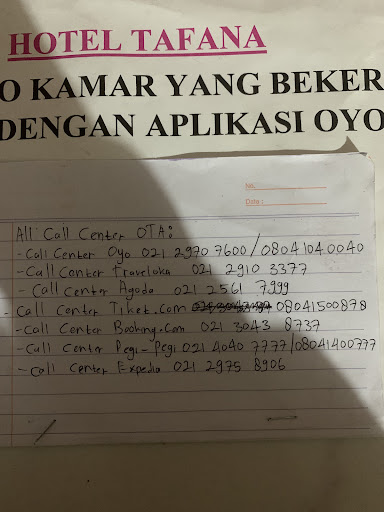 HOTEL TAFANA
O KAMAR YANG BEKER
DENGAN APLIKASI OYO
No.
Date :
All Call Center OTA :
- Call Center Oyo 021 2970 7600 / 08041040040
- Call Center Traveloka 021 2910 3377
- Call Center Agoda 021 2561 7999
- Call Center Tiket.com 08041500878
- Call Center Booking.com 021 3043 8737
- Call Center Pegi-Pegi 021 4040 7777 / 08041400777
- Call Center Expedia 021 2975 8906